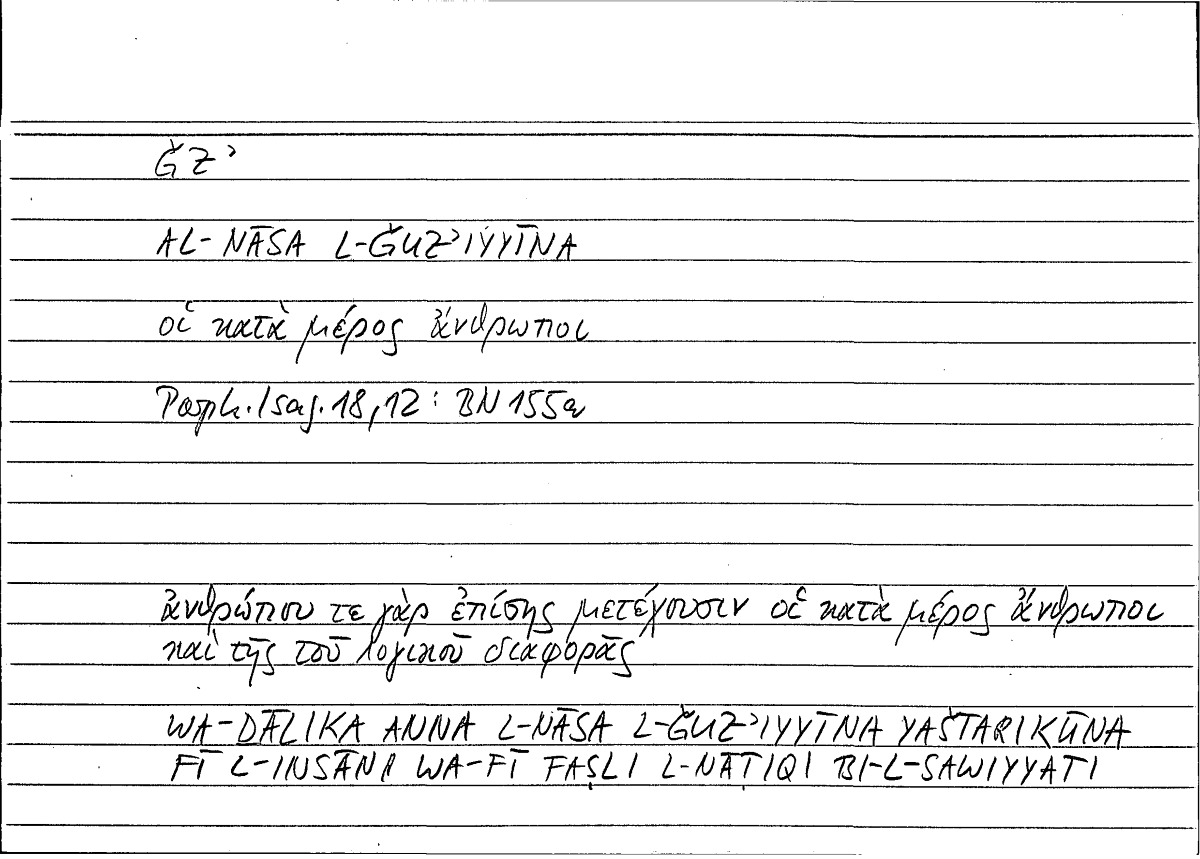 ǦZʾ
AL-NĀSA L-ǦUZʾIYYĪNA
οἱ κατὰ μέρος ἄνθρωποι
Porph. Isag. 18,12: BN 155a
ἀνθρώπου τε γὰρ ἐπίσης μετέχουσιν οἱ κατὰ μέρος ἄνθρωποι
καὶ τῆς τοῦ λογικοῦ διαφορᾶς
WA-ḎĀLIKA ANNA L-NĀSA L-ǦUZʾIYYĪNA YAŠTARIKŪNA
FĪ L-INSĀNI WA-FĪ FAṢLI L-NĀṬIQI BI-L-SAWIYYATI